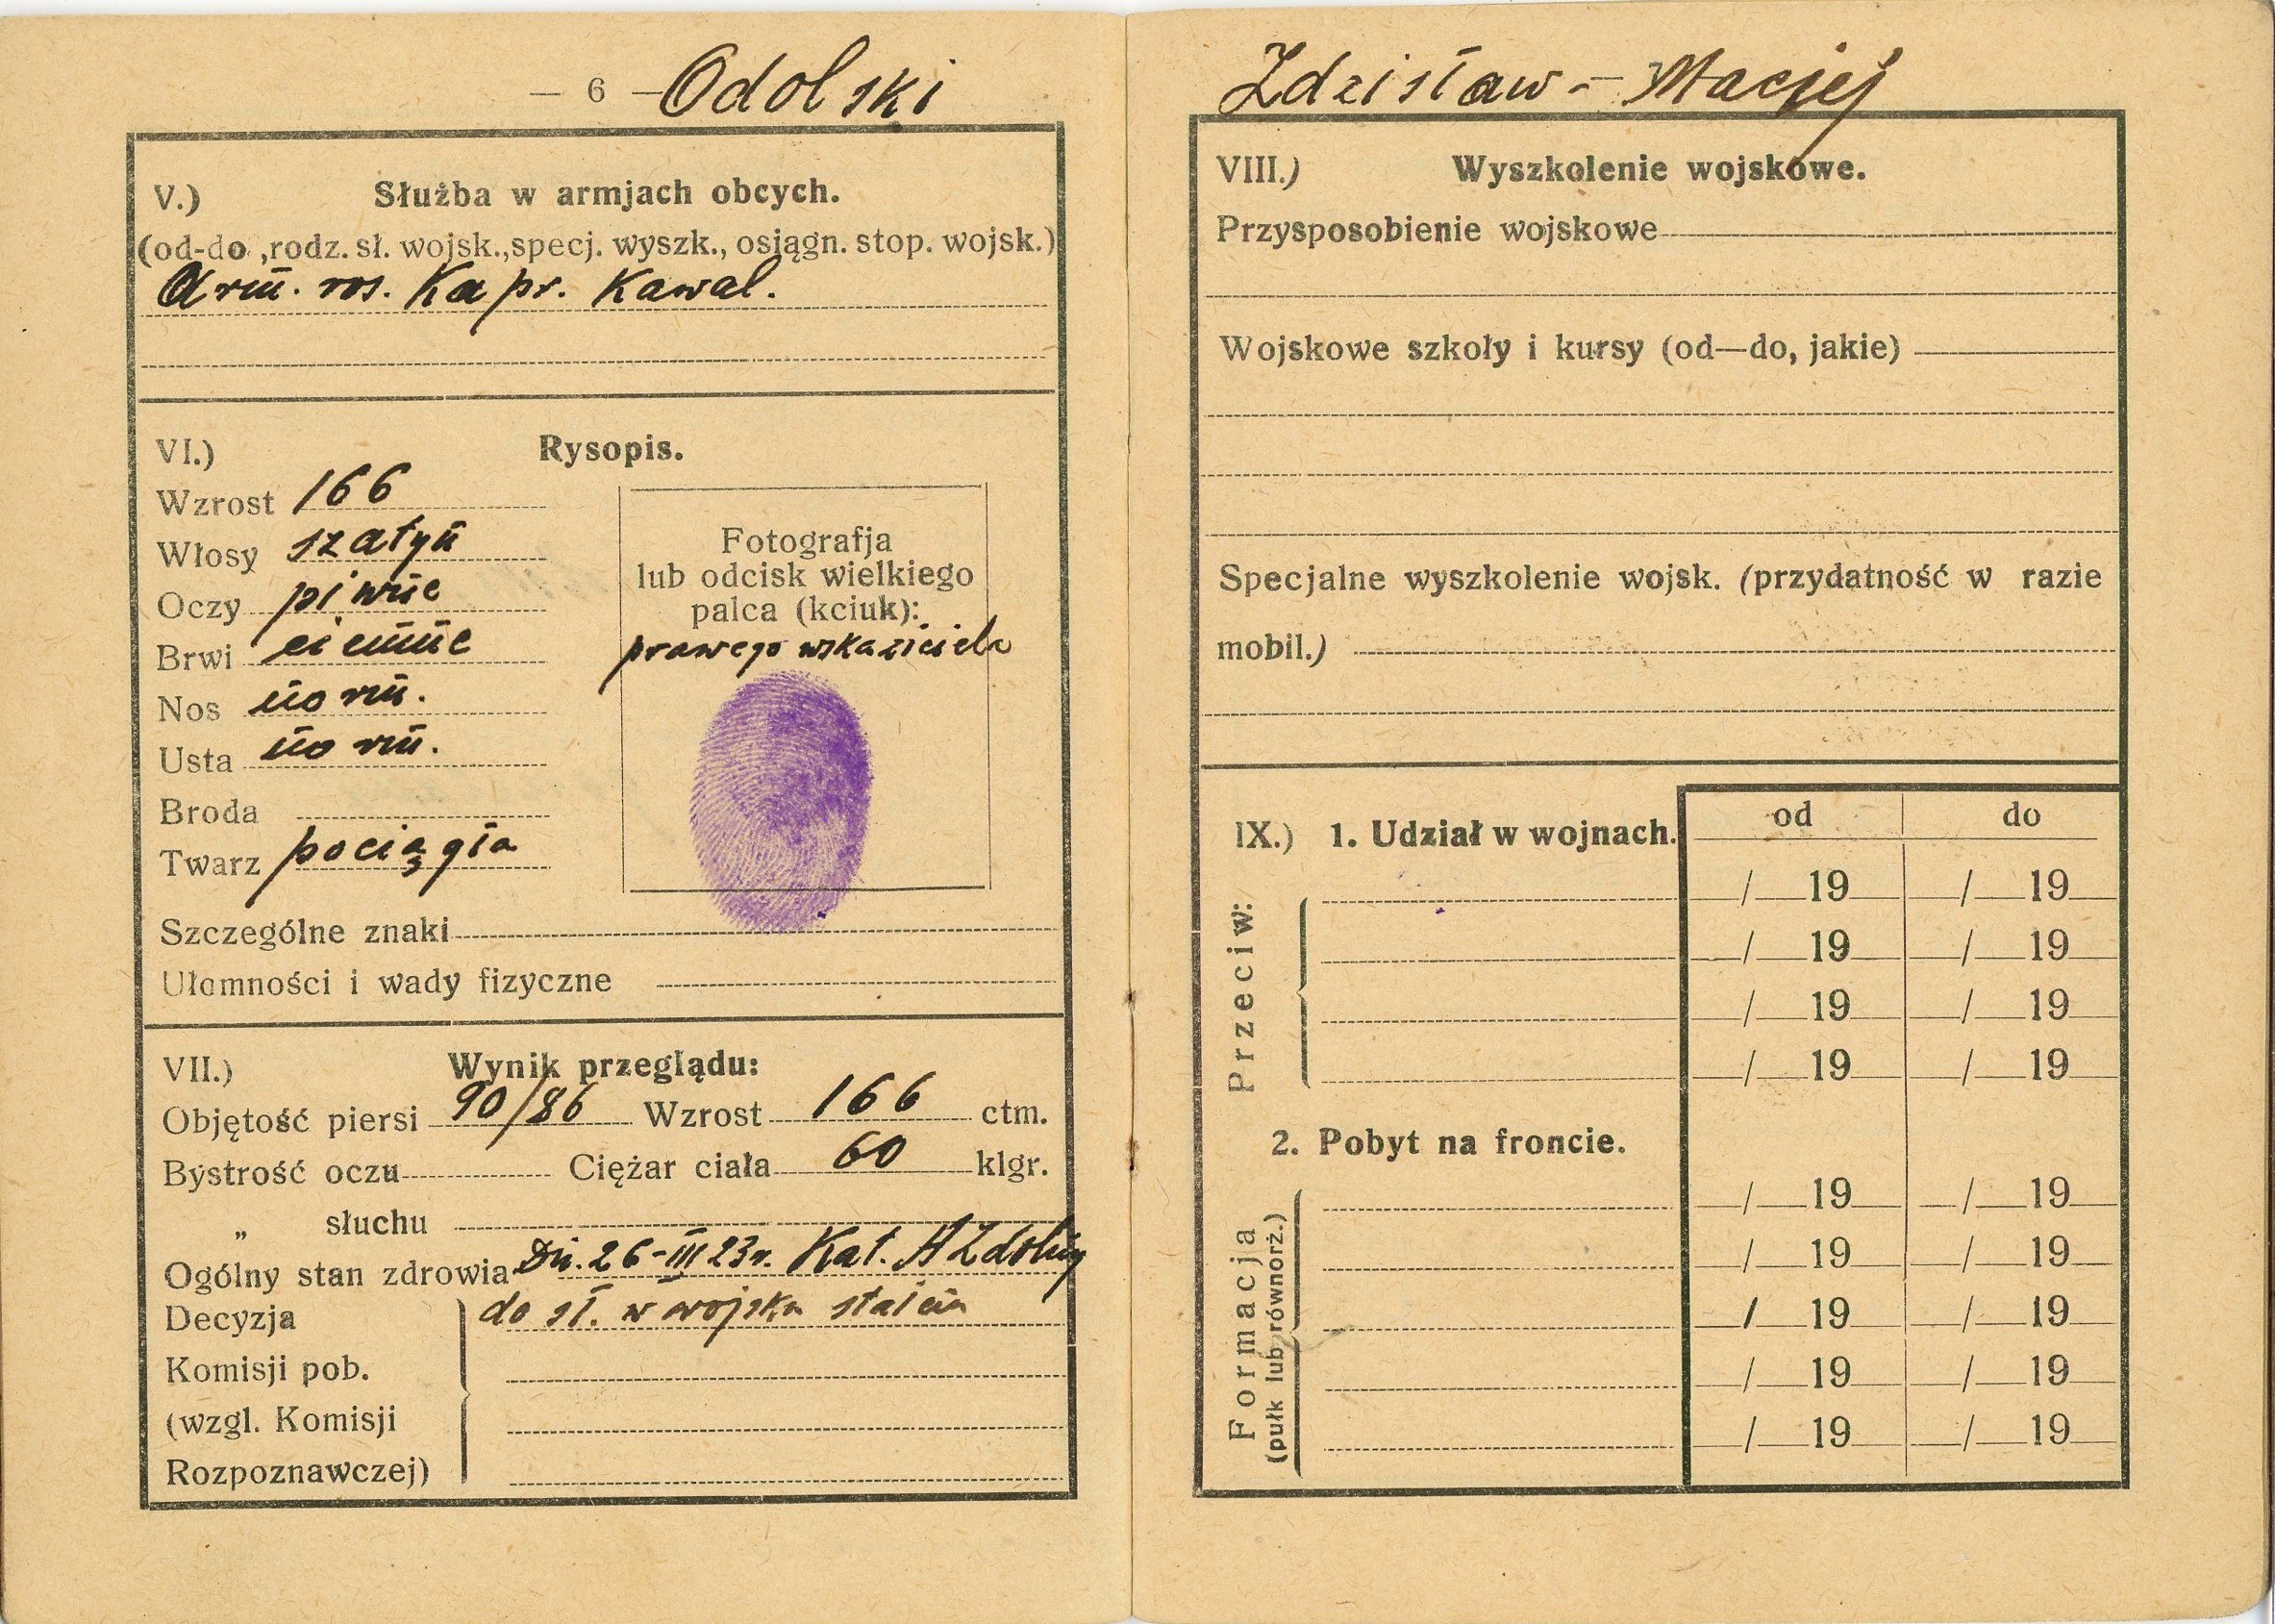 — 6 — Odolski
V.) Służba w armjach obcych.
(od-do ,rodz. sł. wojsk.,specj. wyszk., osiągn. stop. wojsk.)
Arm. ros. Kapr. Kawal.
VI.) Rysopis.
Wzrost 166
Włosy szatyn
Oczy piwne
Brwi ciemne
Nos norm.
Usta norm.
Broda
Twarz pociągła
Fotografja
lub odcisk wielkiego
palca (kciuk):
prawego wskaziciela
Szczególne znaki
Ułomności i wady fizyczne
VII.) Wynik przeglądu:
Objętość piersi 90/86 Wzrost 166 ctm.
Bystrość oczu Ciężar ciała 60 klgr.
„ słuchu
Ogólny stan zdrowia Dn. 26-III 23r. Kat. A Zdolny
Decyzja do sł. w wojsku stałem
Komisji pob.
(wzgl. Komisji
Rozpoznawczej)
Zdzisław - Maciej
VIII.) Wyszkolenie wojskowe.
Przysposobienie wojskowe
Wojskowe szkoły i kursy (od—do, jakie)
Specjalne wyszkolenie wojsk. (przydatność w razie
mobil.)
IX.) 1. Udział w wojnach. od do
Przeciw:
/ 19 / 19
/ 19 / 19
/ 19 / 19
/ 19 / 19
2. Pobyt na froncie.
Formacja
(pułk lub równorż.)
/ 19 / 19
/ 19 / 19
/ 19 / 19
/ 19 / 19
/ 19 / 19